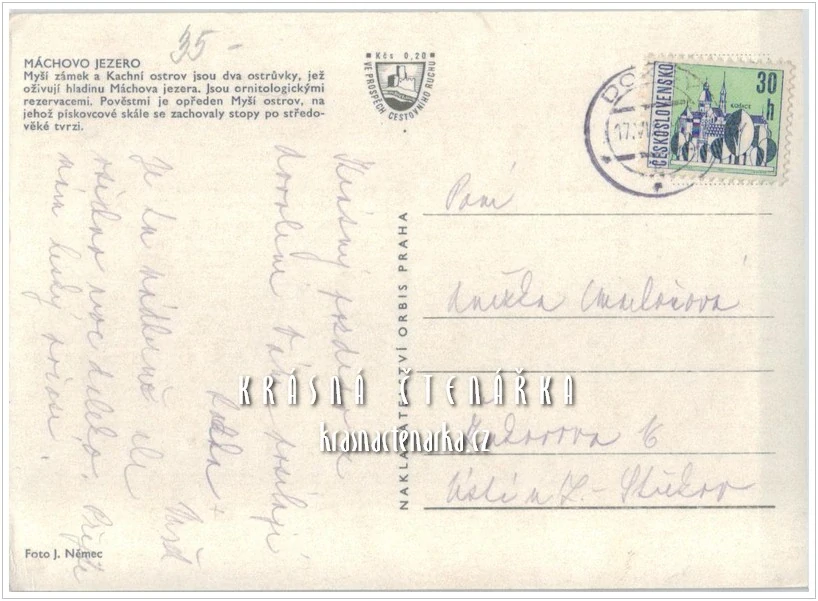 35-
MÁCHOVO JEZERO
Myší zámek a Kachní ostrov jsou dva ostrůvky, jež
oživují hladinu Máchova jezera. Jsou ornitologickými
rezervacemi. Pověstmi je opředen Myší ostrov, na
jehož pískovcové skále se zachovaly stopy po středo-
věké tvrzi.
Kčs 0,20
VE PROSPĚCH CESTOVNÍHO RUCHU
ČESKOSLOVENSKO
30
h
KOŠICE
17.VI
Krásný pozdrav z
dovolené Vám posílají
Je tu nádherně ale
moc daleko. Přijďte
k nám
Paní
Anežka
6
Ústí n L. - Střekov
NAKLADATELSTVÍ ORBIS PRAHA
KRÁSNÁ ČTENÁŘKA
krasnactenarka.cz
Foto J. Němec